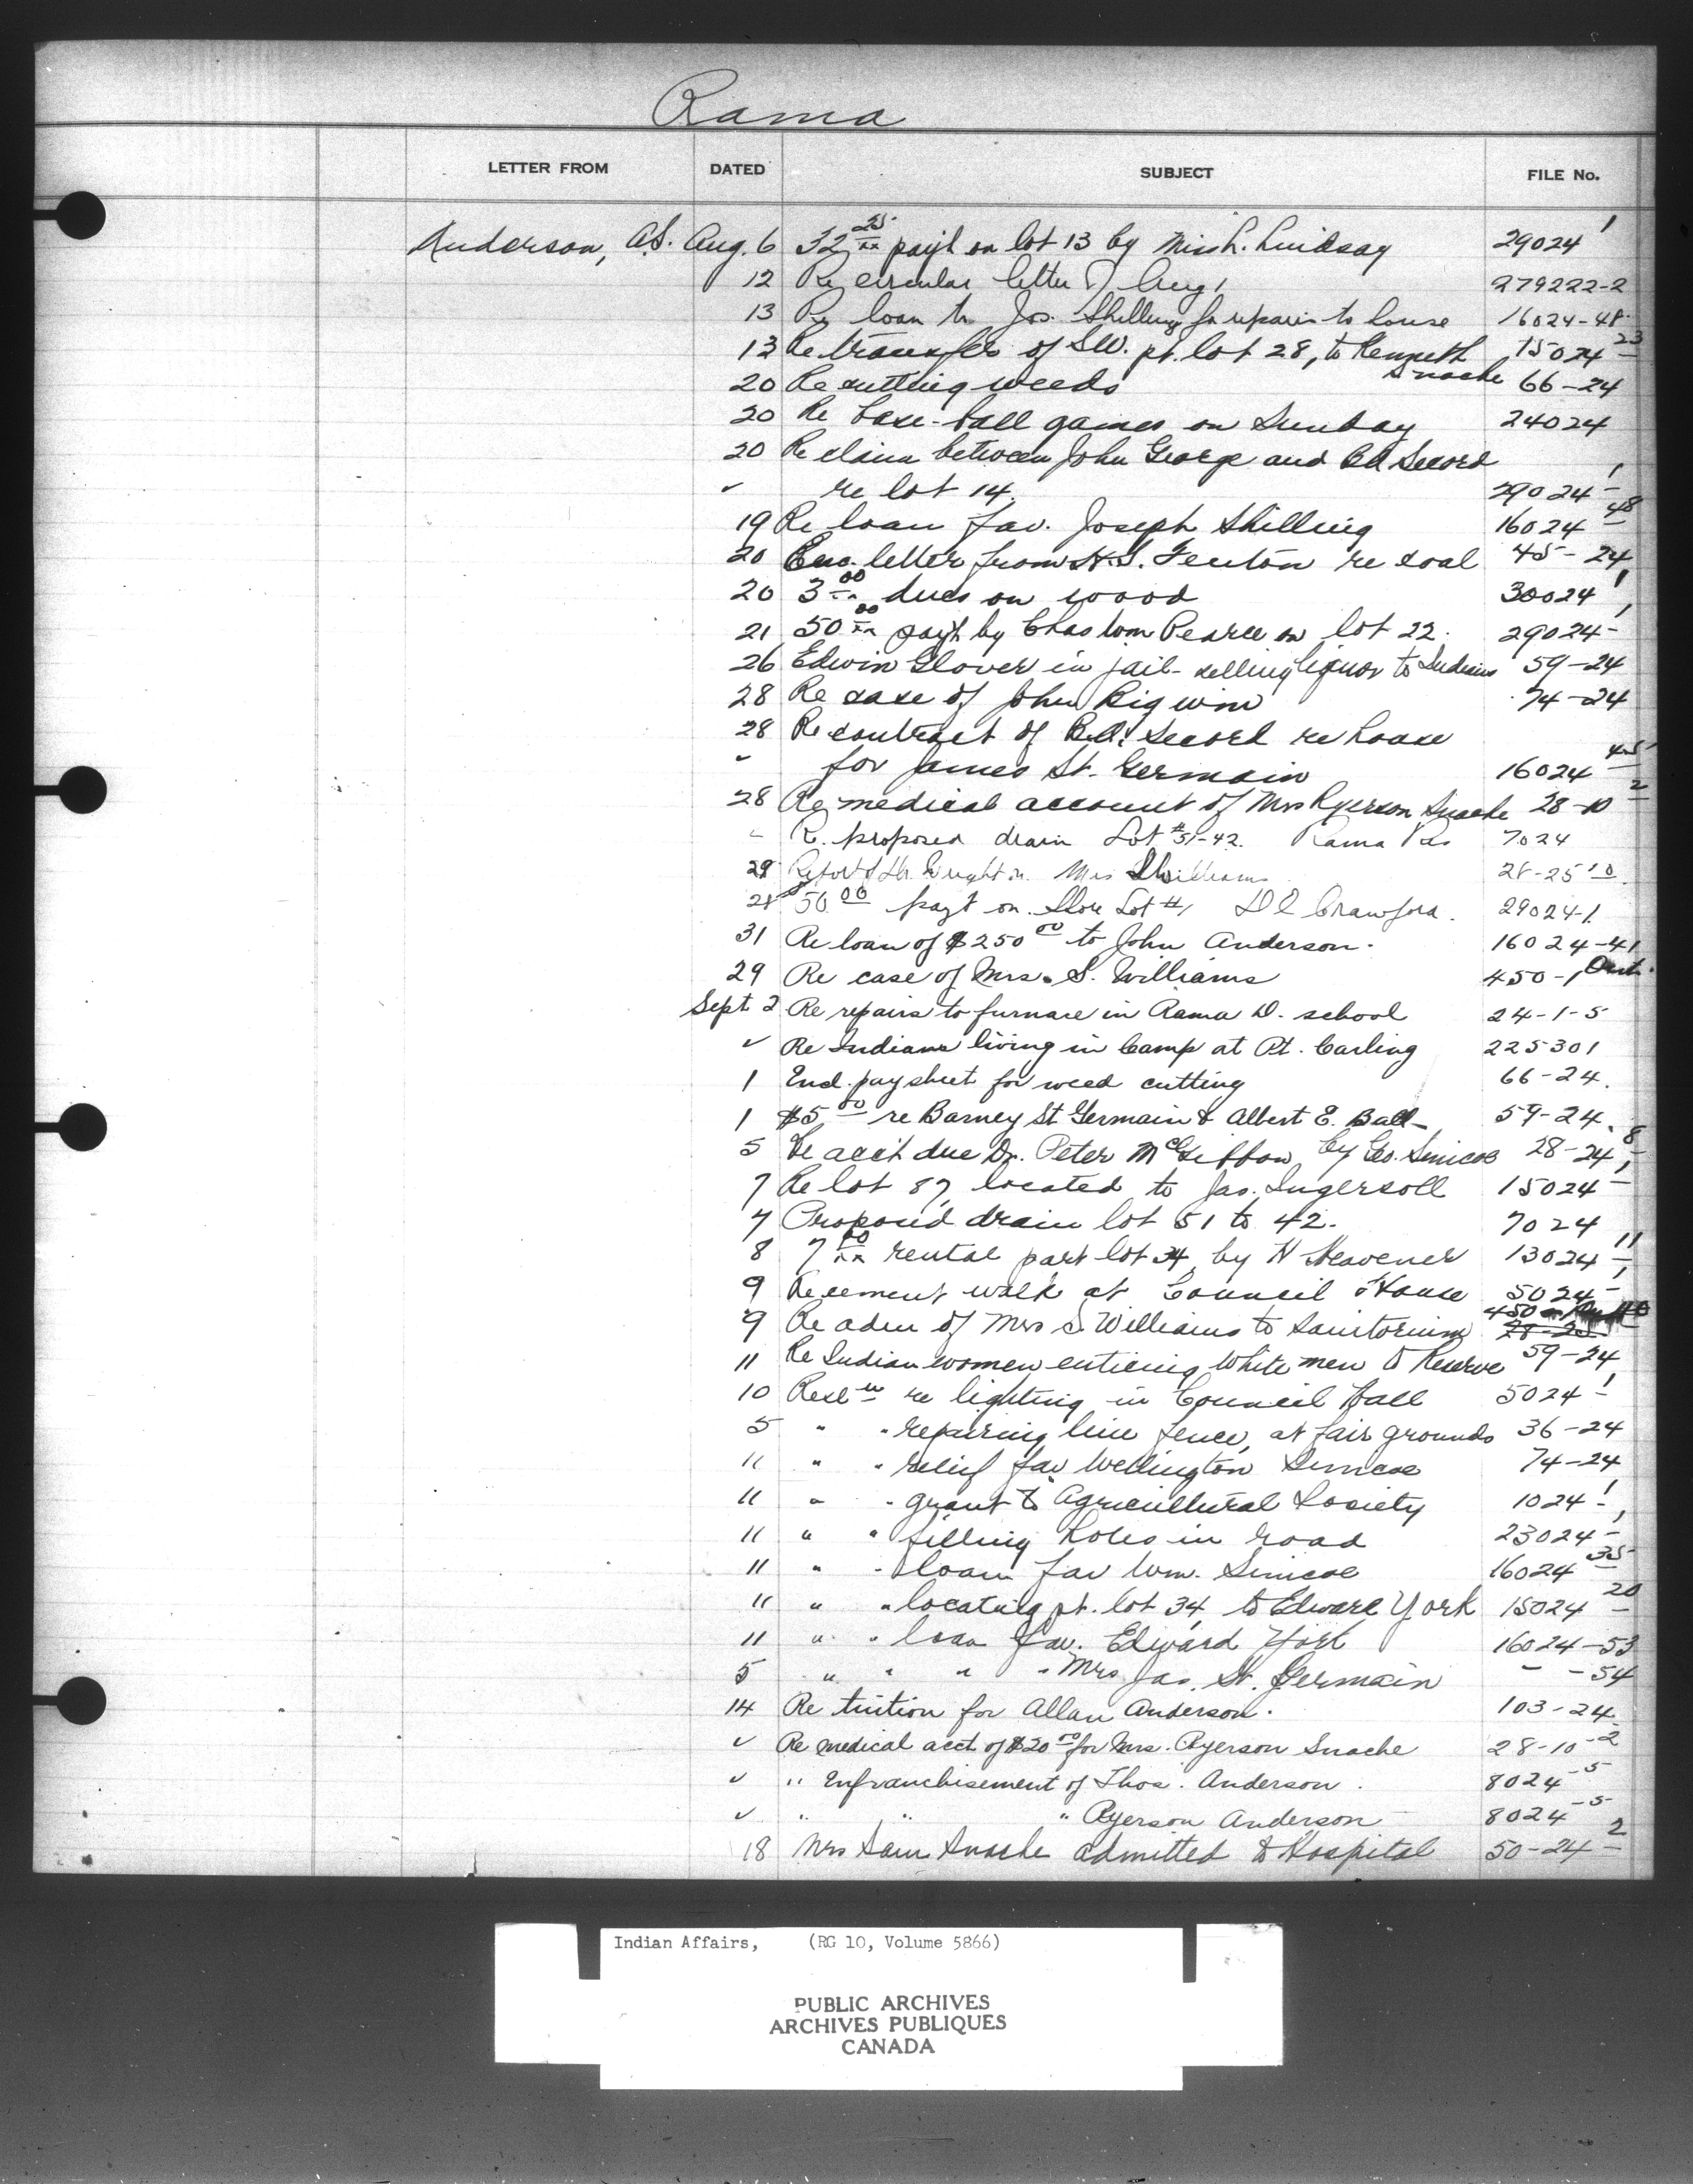 Rama
LETTER FROM DATED SUBJECT FILE No.
Anderson, A.S. Aug. 6 32 25/xx pay't on lot 13 by Miss L. Lindsay 29024-1
12 Re circular letter of Aug 1 279222-2
13 Re loan to Jos. Shilling for repairs to house 16024-48
13 Re transfer of SW. pt. lot 28, to Kenneth Snache 15024-23
20 Re cutting weeds 66-24
20 Re base-ball games on Sunday 24024
20 Re claim between John George and B.A. Secord
✓ re lot 14. 29024-1
19 Re loan fav. Joseph Shilling 16024-48
20 Enc. letter from H.S. Fenton re coal 45-24
20 3 00/xx dues on wood 30024-1
21 50 00/xx pay't by Chas Wm Pearce on lot 22. 29024-1
26 Edwin Glover in jail - selling liquor to Indians 59-24
28 Re case of John Bigwin 74-24
28 Re contract of B.A. Secord re house
" for James St. Germain 16024-45
28 Re medical account of Mrs Ryerson Snache 28-10-2
" Re proposed drain Lot # 51-42. Rama Res 7024
29 Report of Dr. Wright on Mrs S Williams 28-25-10
28 $50 00 pay't on Store Lot #1 Crawford. 29024-1
31 Re loan of $250 00 to John Anderson. 16024-41
29 Re case of Mrs. S. Williams 450-1 Ont.
Sept 2 Re repairs to furnace in Rama D. school 24-1-5
✓ Re Indians living in Camp at Pt. Carling 225301
1 Encl. pay sheet for weed cutting 66-24.
1 $5 00 re Barney St Germain & Albert E. Ball 59-24.
5 Re acc't due Dr. Peter McGibbon by Geo. Simcoe 28-24-8
7 Re lot 87 located to Jas. Ingersoll 15024-1
7 Proposed drain lot 51 to 42. 7024
8 7 00/xx rental part lot 34 by N Heavener 13024-11
9 Re cement walk at Council House 5024-1
9 Re adm of Mrs S. Williams to Sanitorium 450-1 28-25
11 Re Indian women enticing white men to Reserve 59-24
10 Resl'n re lighting in Council Hall 5024-1
5 " " repairing line fence, at fair grounds 36-24
11 " " relief fav Wellington Simcoe 74-24
11 " " grant to Agricultural Society 1024-1
11 " " filling holes in road 23024-1
11 " " loan fav Wm. Simcoe 16024-35
11 " " locating pt. lot 34 to Edward York 15024-20
11 " " loan fav. Edward York 16024-53
5 " " " " Mrs Jas. St. Germain " -54
14 Re tuition for Allan Anderson. 103-24
✓ Re medical acct of $20 00 for Mrs. Ryerson Snache 28-10-2
✓ " Enfranchisement of Thos. Anderson. 8024-5
✓ " " " Ryerson Anderson 8024-5
18 Mrs Sam Snache admitted to Hospital 50-24-2
Indian Affairs, (RG 10, Volume 5866)
PUBLIC ARCHIVES
ARCHIVES PUBLIQUES
CANADA